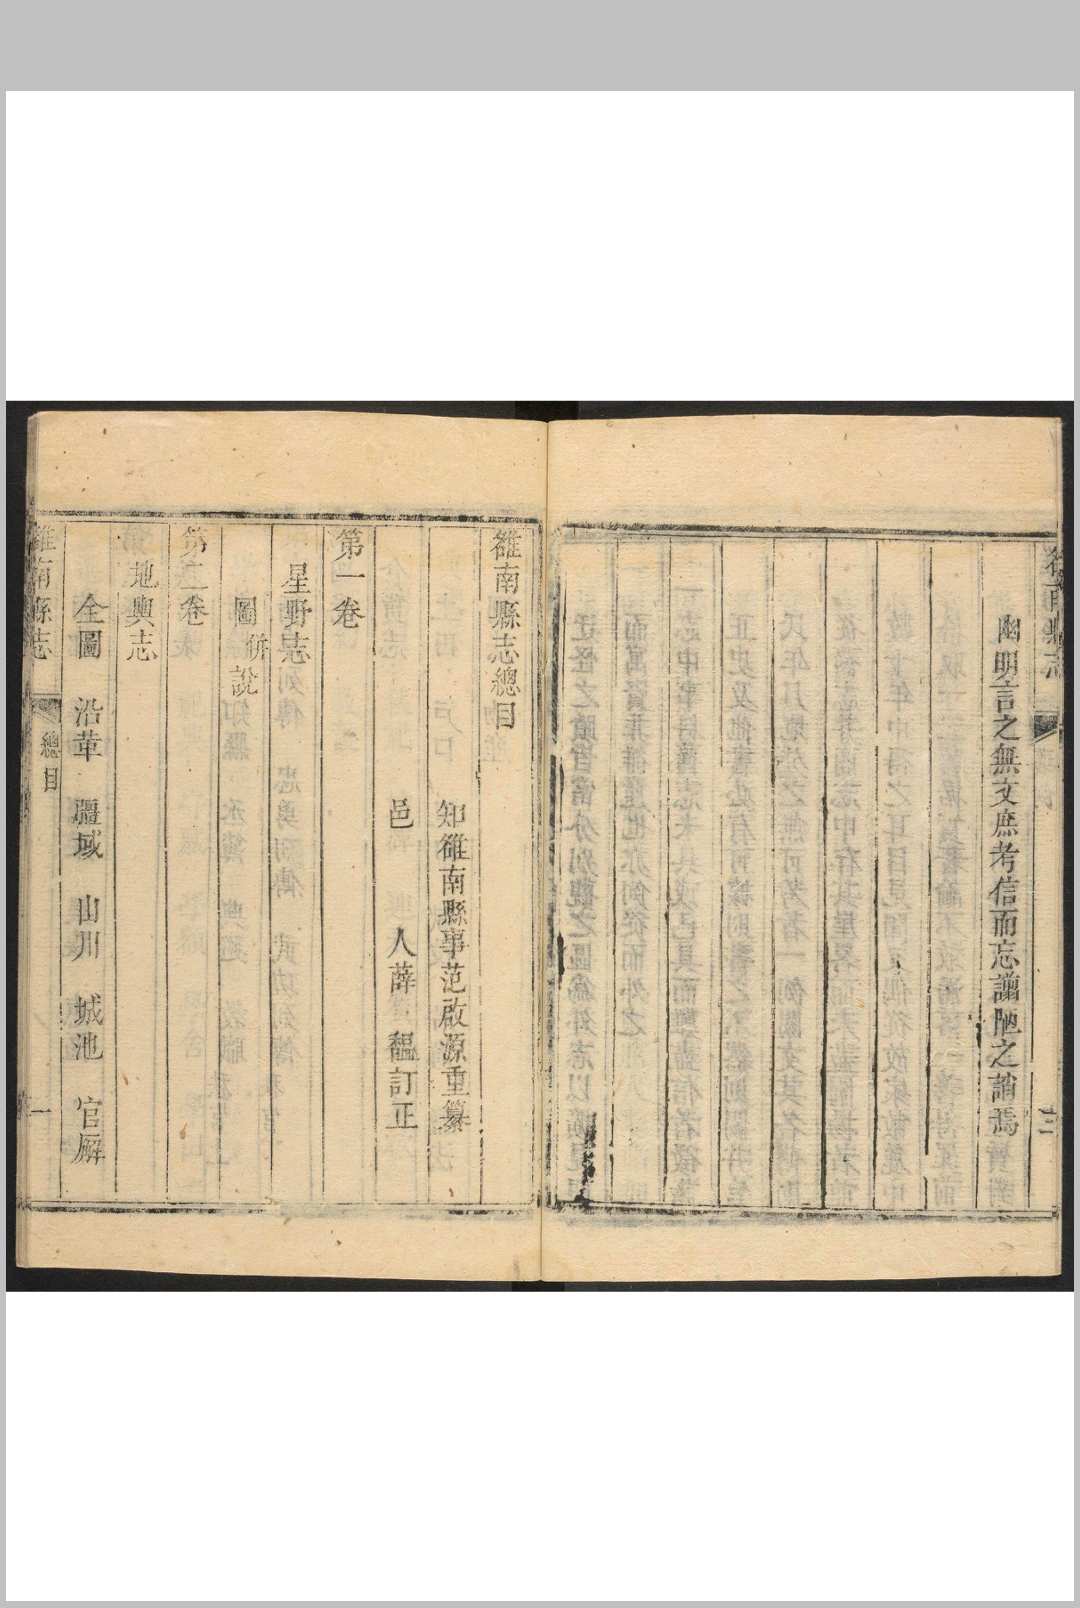 幽明言之無文庶考信而忘譾陋之誚焉
三
雒南縣志總目
知雒南縣事范啟源重纂
邑人薛韞訂正
第一卷
星野志
圖併說
第二卷
地輿志
全圖 沿革 疆域 山川 城池 官廨
雒南縣志 總目 一